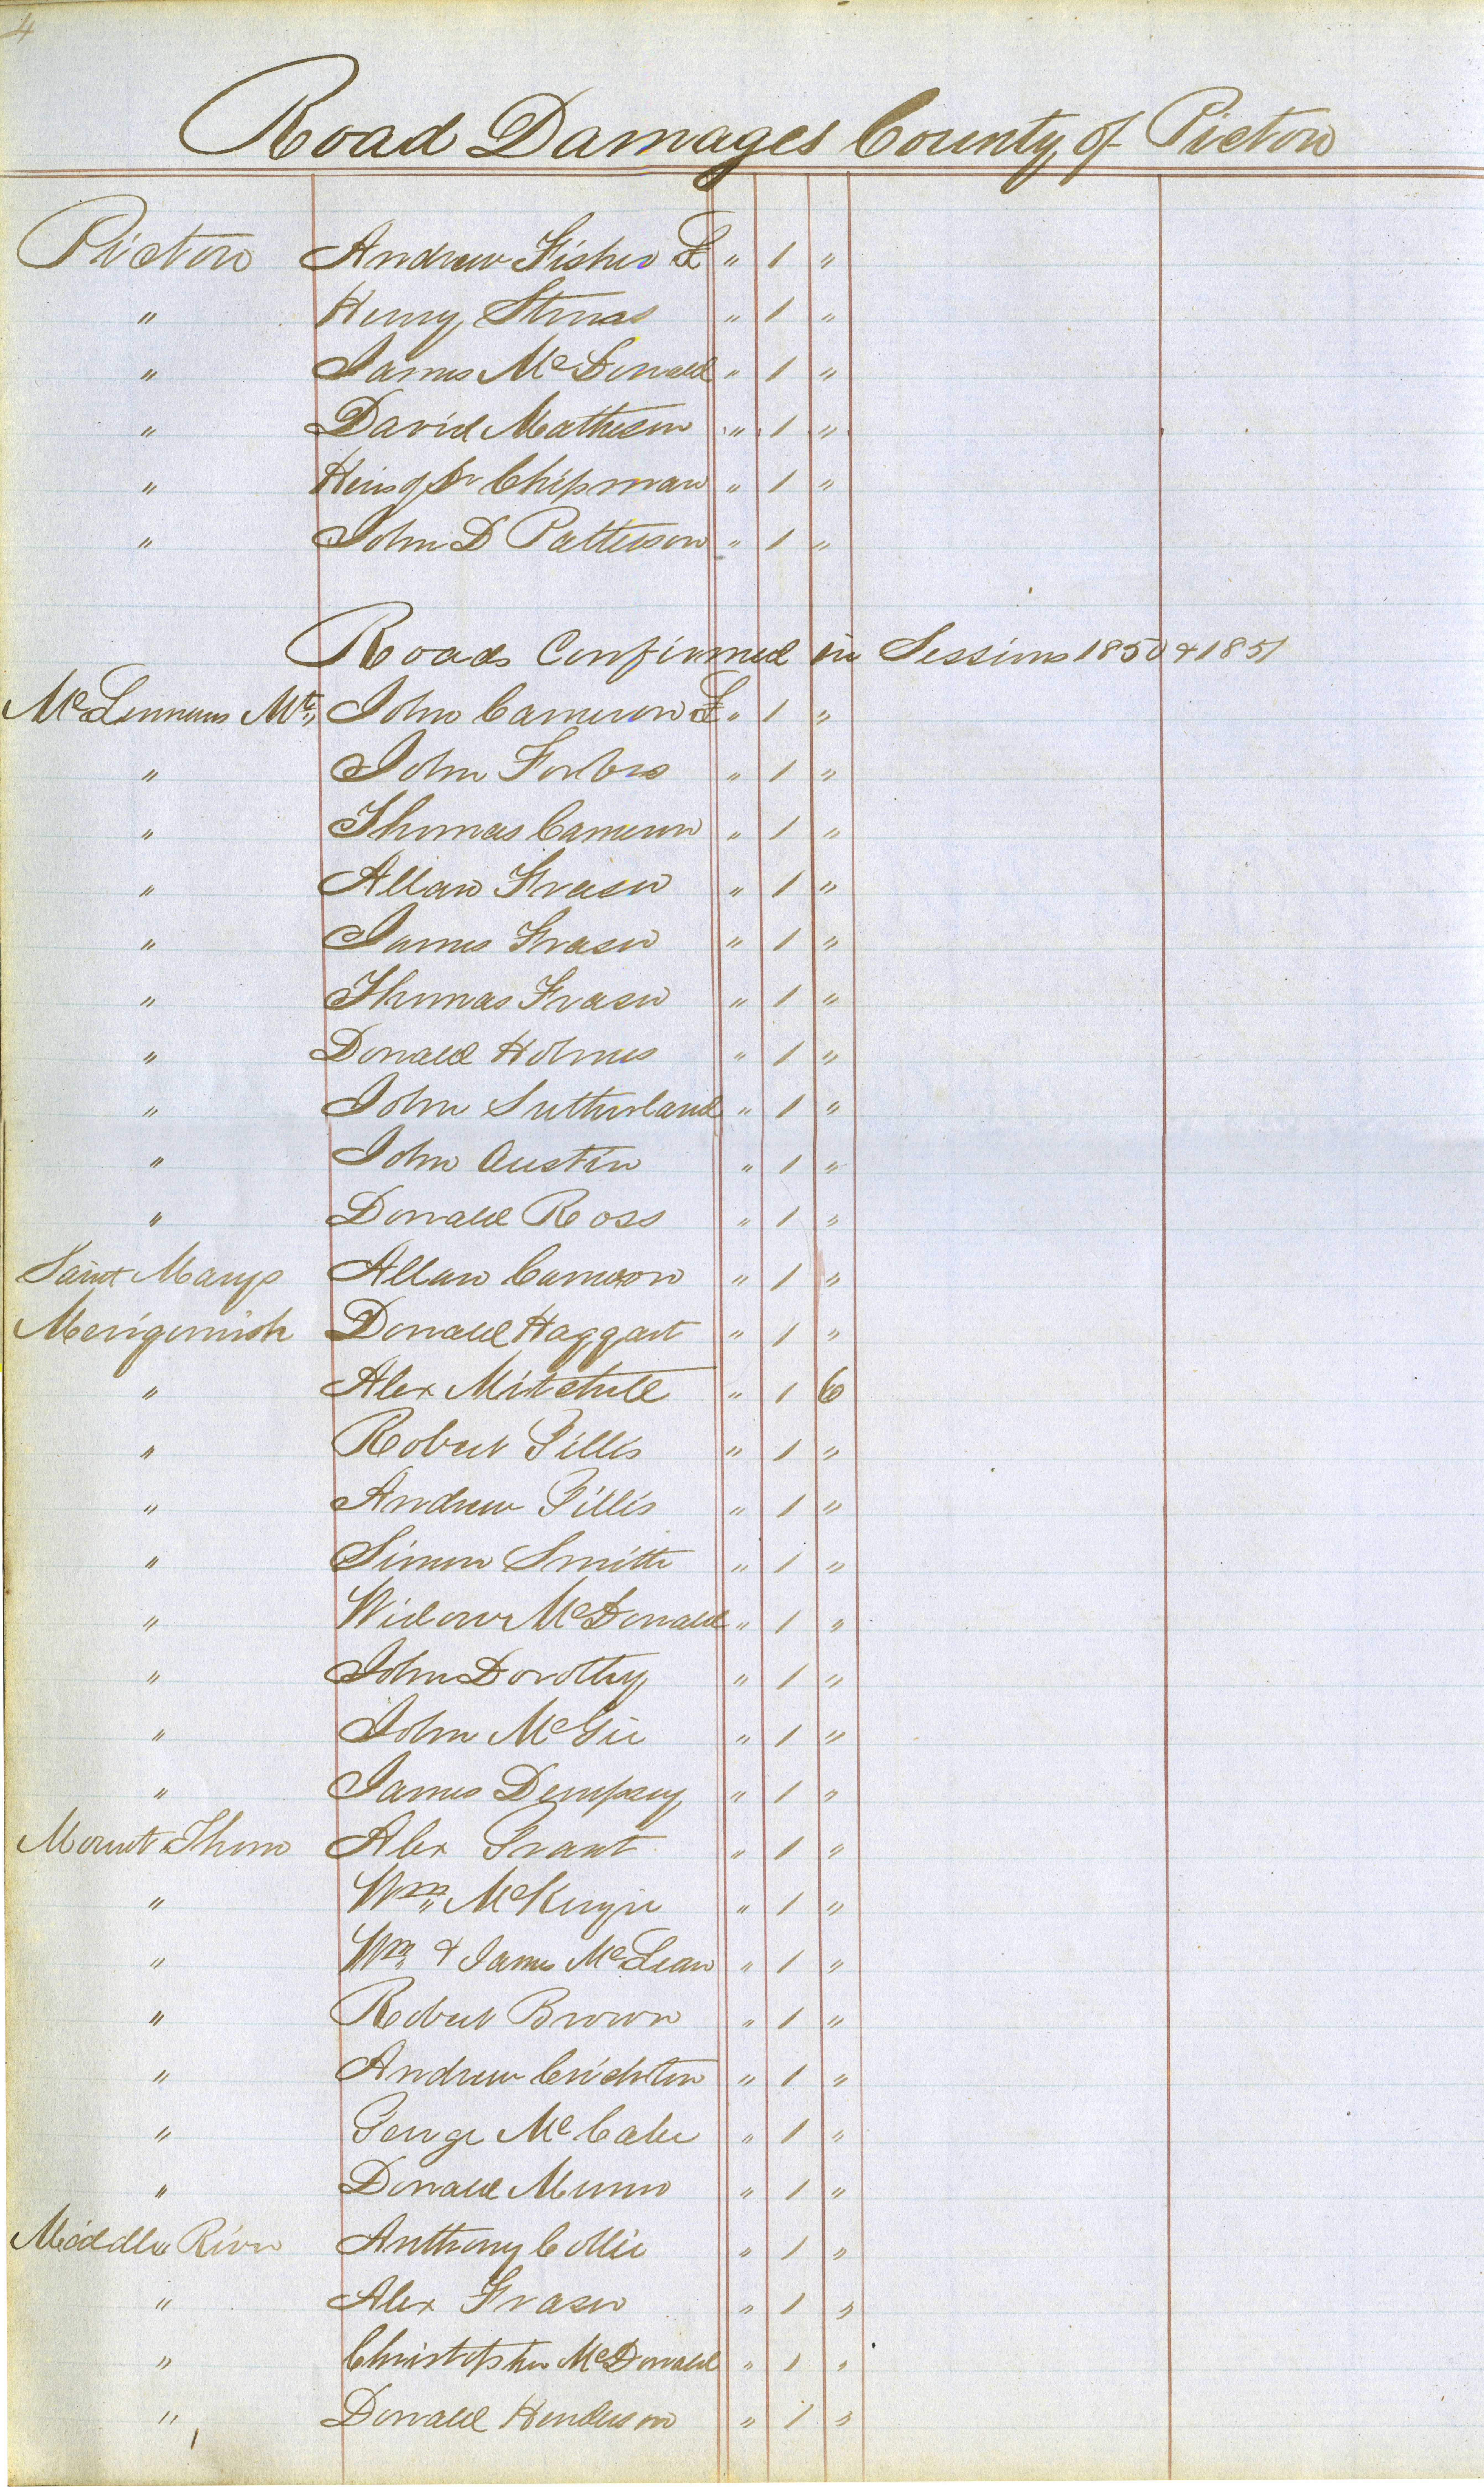 4
Road Damages County of Pictou
Pictou Andrew Fisher £ " 1 "
" Henry " 1 "
" James McDonald " 1 "
" David Matheson " 1 "
" Heirs of Chipman " 1 "
" John D Patterson " 1 "
Roads Confirmed in Sessions 1850 & 1851
McLennans Mt,, John Cameron £ " 1 "
" John Forbes " 1 "
" Thomas Cameron " 1 "
" Allan Fraser " 1 "
" James Fraser " 1 "
" Thomas Fraser " 1 "
" Donald Holmes " 1 "
" John Sutherland " 1 "
" John Austin " 1 "
" Donald Ross " 1 "
Saint Marys Allan Cameron " 1 "
Merigomish Donald Haggart " 1 "
" Alex Mitchell " 1 6
" Robert Gillis " 1 "
" Andrew Gillis " 1 "
" Simon Smith " 1 "
" Widow McDonald " 1 "
" John Dorothy " 1 "
" John McGie " 1 "
" James Dempsey " 1 "
Mount Thom Alex Grant " 1 "
" Wm,, McKenzie " 1 "
" Wm & James McLean " 1 "
" Robert Brown " 1 "
" Andrew Crichton " 1 "
" George McCabe " 1 "
" Donald Munro " 1 "
Middle River Anthony Collie " 1 "
" Alex Fraser " 1 "
" Christopher McDonald " 1 "
" Donald Henderson " 1 "